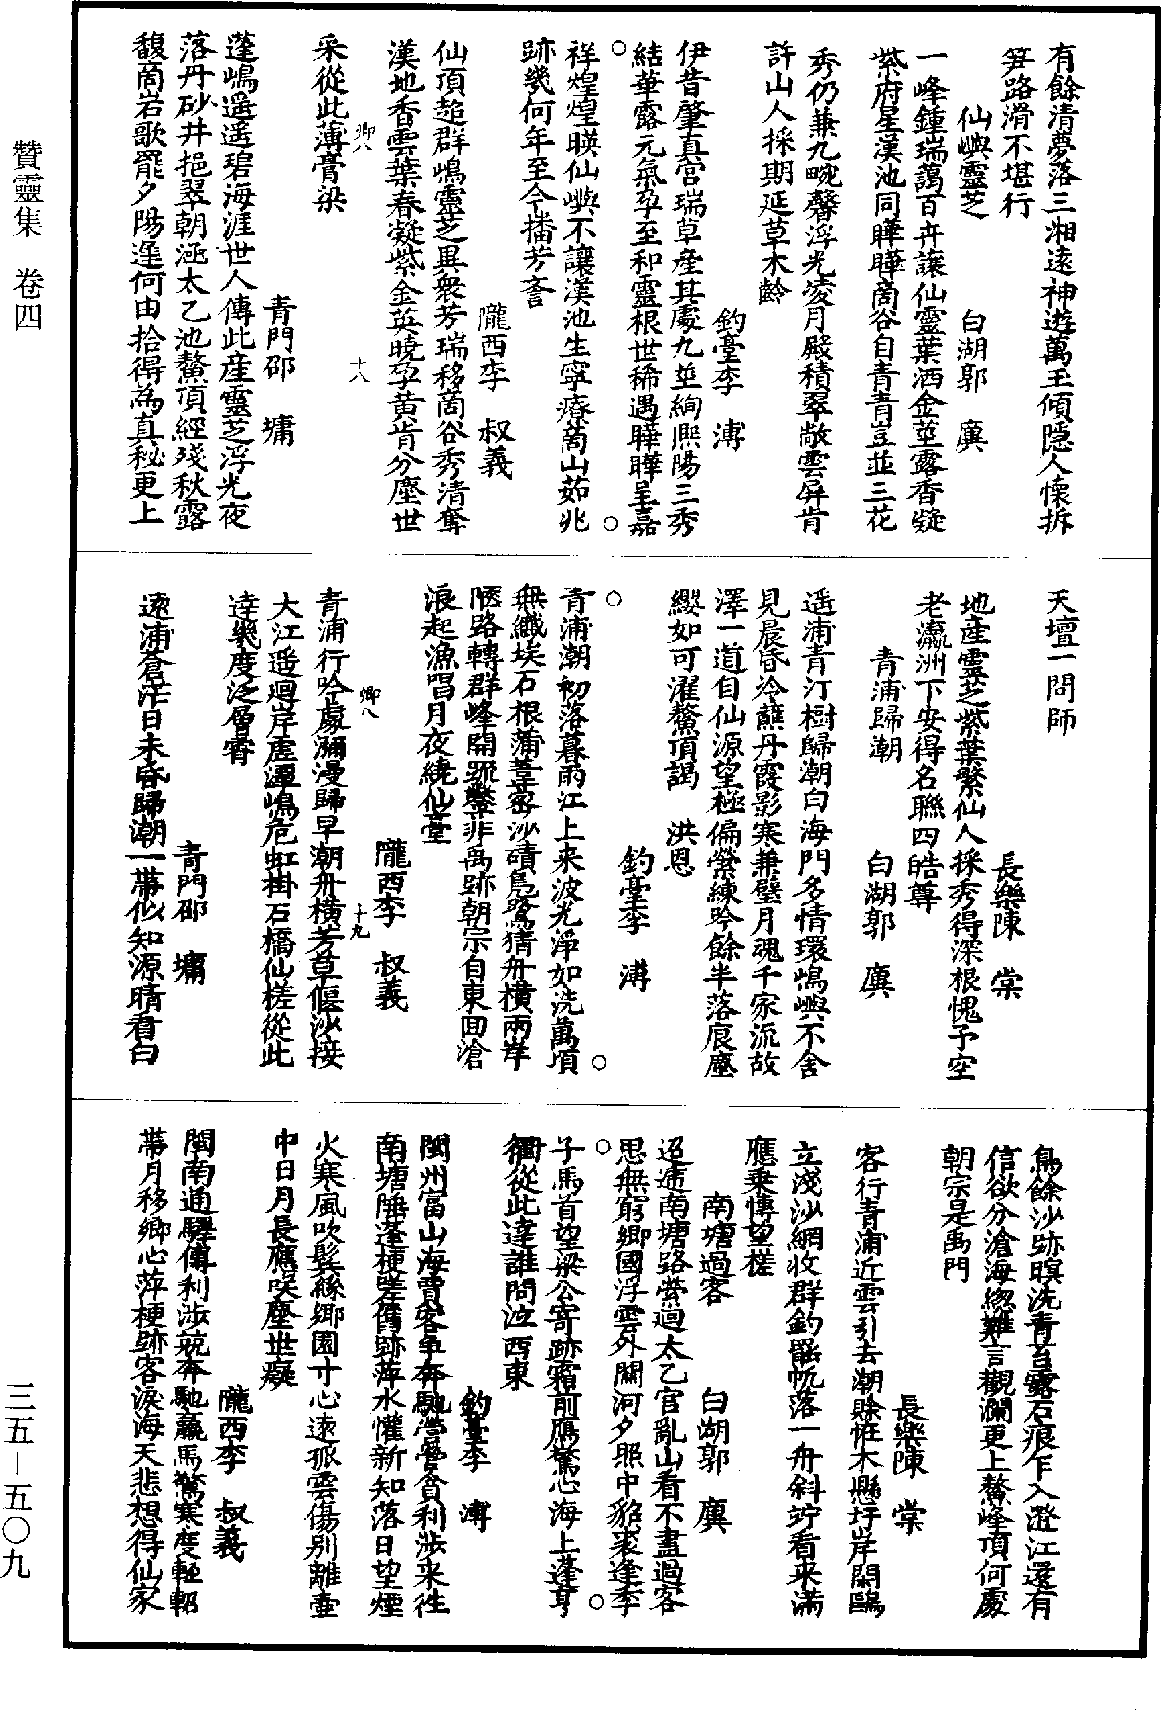 贊靈集 卷四
有餘清夢落三湘遠神遊萬玉傾隱人懷拆
笋路滑不堪行
仙嶼靈芝 白湖郭 廙
一峰鍾瑞藹百卉讓仙靈葉洒金莖露香凝
紫府星漢池同曄曄商谷自青青豈並三花
秀仍兼九畹馨浮光凌月殿積翠敞雲屏肯
許山人採期延草木齡
釣臺李 溥
伊昔肇真宮瑞草産其處九莖絢熙陽三秀
結華露元氣孕至和靈根世稀遇曄曄呈嘉
祥煌煌暎仙嶼不讓漢池生寧療商山茹兆
跡幾何年至今播芳譽
隴西李 叔義
仙頂超群嶋靈芝異衆芳瑞移商谷秀清奪
漢地香雲葉春凝紫金英曉孕黃肯分塵世
卿八 十八
采從此薄膏梁
青門邵 墉
蓬嶋遥遥碧海涯世人傳此産靈芝浮光夜
落丹砂井挹翠朝涵太乙池鰲頂經殘秋露
馥商岩歌罷夕陽遲何由拾得為真秘更上
天壇一問師
長樂陳 棠
地産靈芝紫葉繁仙人採秀得深根愧予空
老瀛洲下安得名聯四皓尊
青浦歸潮 白湖郭 廙
遥浦青汀樹歸潮白海門多情環嶋嶼不舍
見晨昏冷蘸丹霞影寒兼璧月魂千家流故
澤一道自仙源望極偏縈練吟餘半落痕塵
纓如可濯鰲頂謁 洪恩
釣臺李 溥
青浦潮初落暮雨江上来波光淨如洗萬頃
無纖埃石根蒲葦密沙磧鳧鷺猜舟橫兩岸
隱路轉群峰開䟽鑿非禹跡朝宗自東回滄
浪起漁唱月夜繞仙臺
隴西李 叔義
卿八 十九
青浦行吟處瀰漫歸早潮舟橫芳草偃沙接
大江遥迴岸虛潭嶋危虹掛石橋仙槎從此
達幾度泛層霄
青門邵 墉
遠浦蒼茫日未昏歸潮一帶似知源晴看白
鳥餘沙跡暝洗青苔露石痕乍入澄江還有
信欲分滄海緫難言觀瀾更上鰲峰頂何處
朝宗是禹門
長樂陳 棠
客行青浦近雲引去潮賖惟木懸圩岸閑鷗
立淺沙網收群釣罷帆落一舟斜竚看来滿
應乗博望槎
南塘過客 白湖郭 廙
迢遞南塘路縈迴太乙宮亂山看不盡過客
思無窮鄉國浮雲外關河夕照中貂裘逢季
子馬首望梁公寄跡霜前鴈驚心海上蓬亨
衢從此達誰問泣西東
釣臺李 溥
閩州富山海賈客爭奔馳營營貪利涉来徃
南塘陲蓬梗嗟舊跡萍水懽新知落日望煙
火寒風吹鬂絲鄉園寸心遠孤雲傷別離壺
中日月長應咲塵世癡
隴西李 叔義
閩南通驛傳利涉競奔馳羸馬驚寒度輕軺
帶月移鄉心萍梗跡客淚海天悲想得仙家
三五－五〇九